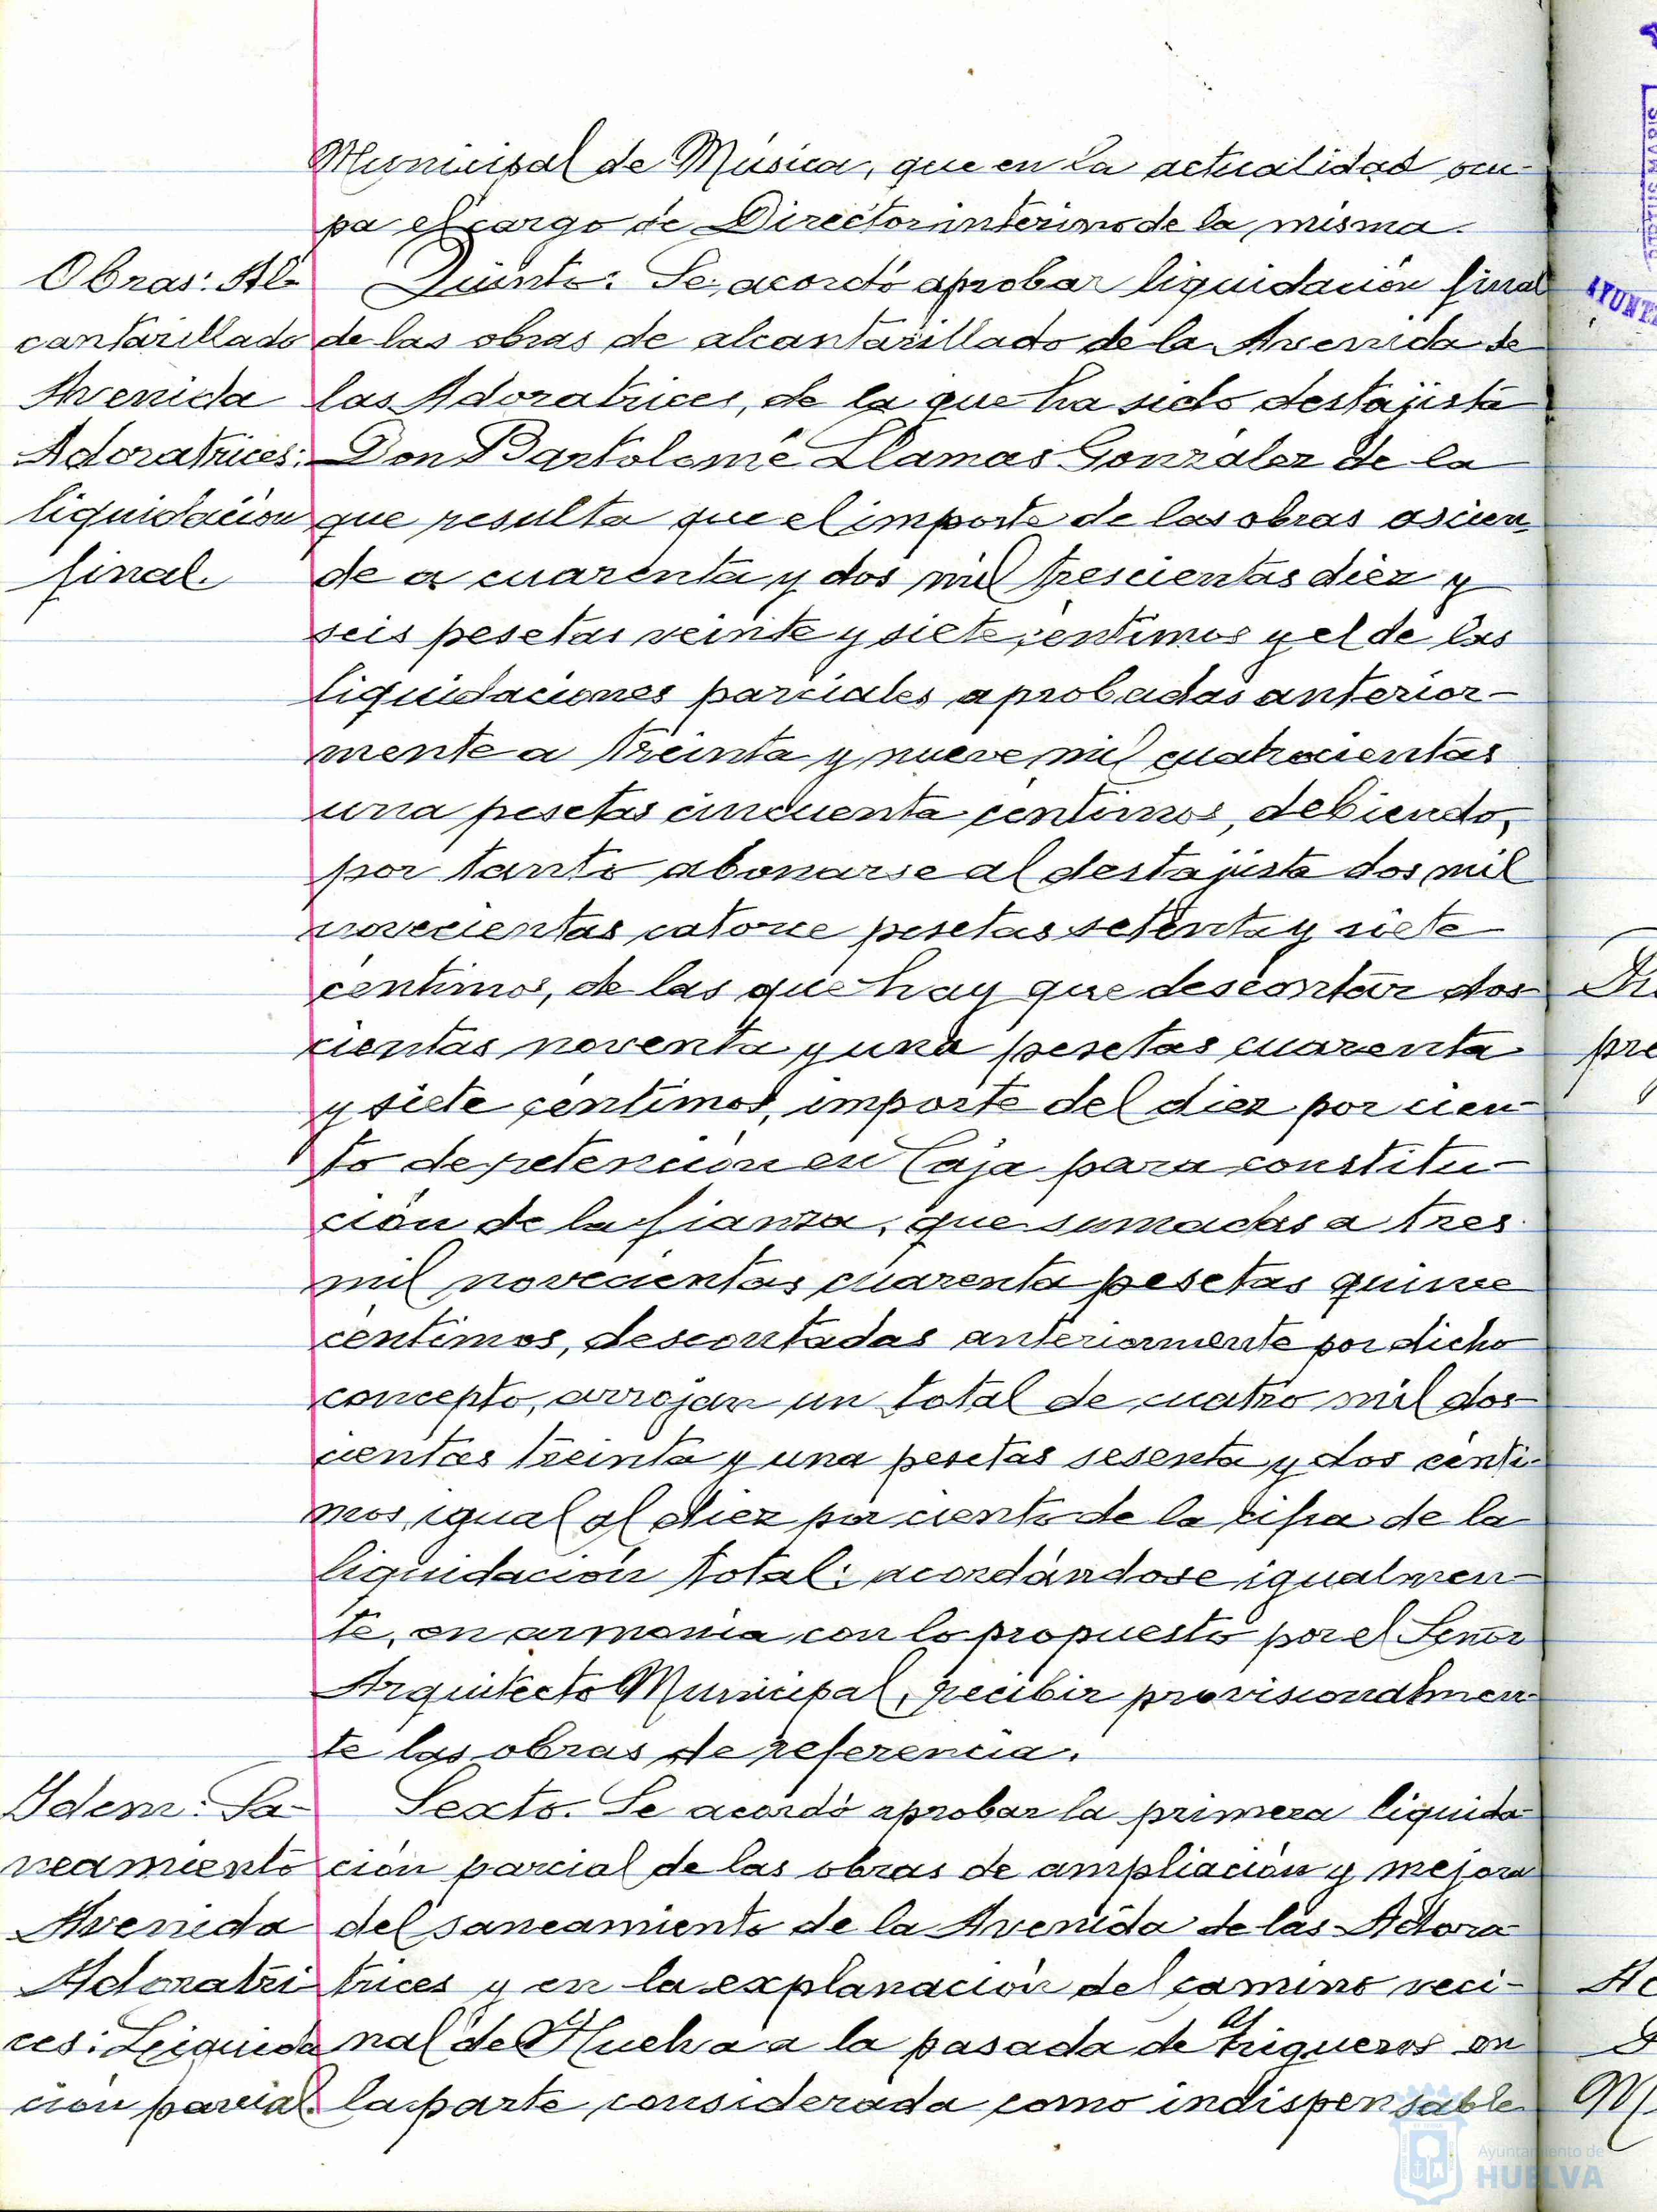 Municipal de Música, que en la actualidad ocu-
pa el cargo de Director interino de la misma.
Obras: Al-
cantarillado
Avenida
Adoratrices:
liquidación
final.
Quinto: Se acordó aprobar liquidación final
de las obras de alcantarillado de la Avenida de
las Adoratrices, de la que ha sido destajista
Don Bartolomé Llamas González de la
que resulta que el importe de las obras ascien-
de a cuarenta y dos mil trescientas diez y
seis pesetas veinte y siete céntimos y el de las
liquidaciones parciales aprobadas anterior-
mente a treinta y nueve mil cuatrocientas
una pesetas cincuenta céntimos, debiendo,
por tanto abonarse al destajista dos mil
novecientas catorce pesetas setenta y siete
céntimos, de las que hay que descontar dos-
cientas noventa y una pesetas cuarenta
y siete céntimos, importe del diez por cien-
to de retención en Caja para constitu-
ción de la fianza, que sumadas a tres
mil novecientas cuarenta pesetas quince
céntimos, descontadas anteriormente por dicho
concepto, arrojan un total de cuatro mil dos-
cientas treinta y una pesetas sesenta y dos cénti-
mos, igual al diez por ciento de la cifra de la
liquidación total; acordándose igualmen-
te, en armonía con lo propuesto por el Señor
Arquitecto Municipal, recibir provisionalmen-
te las obras de referencia.
Idem: Sa-
neamiento
Avenida
Adoratri
ces: Liquida
ción parcial.
Sexto. Se acordó aprobar la primera liquida-
ción parcial de las obras de ampliación y mejora
del saneamiento de la Avenida de las Adora-
trices y en la explanación del camino veci-
nal de Huelva a la pasada de Trigueros en
la parte considerada como indispensable
Ayuntamiento de
HUELVA
PORTUS MARIS
AYUNT
pre